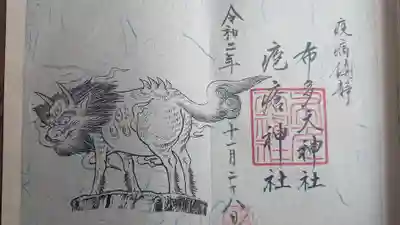 疫病鎮静
布多天神社
疱瘡神社
令和二年
十一月二十八日